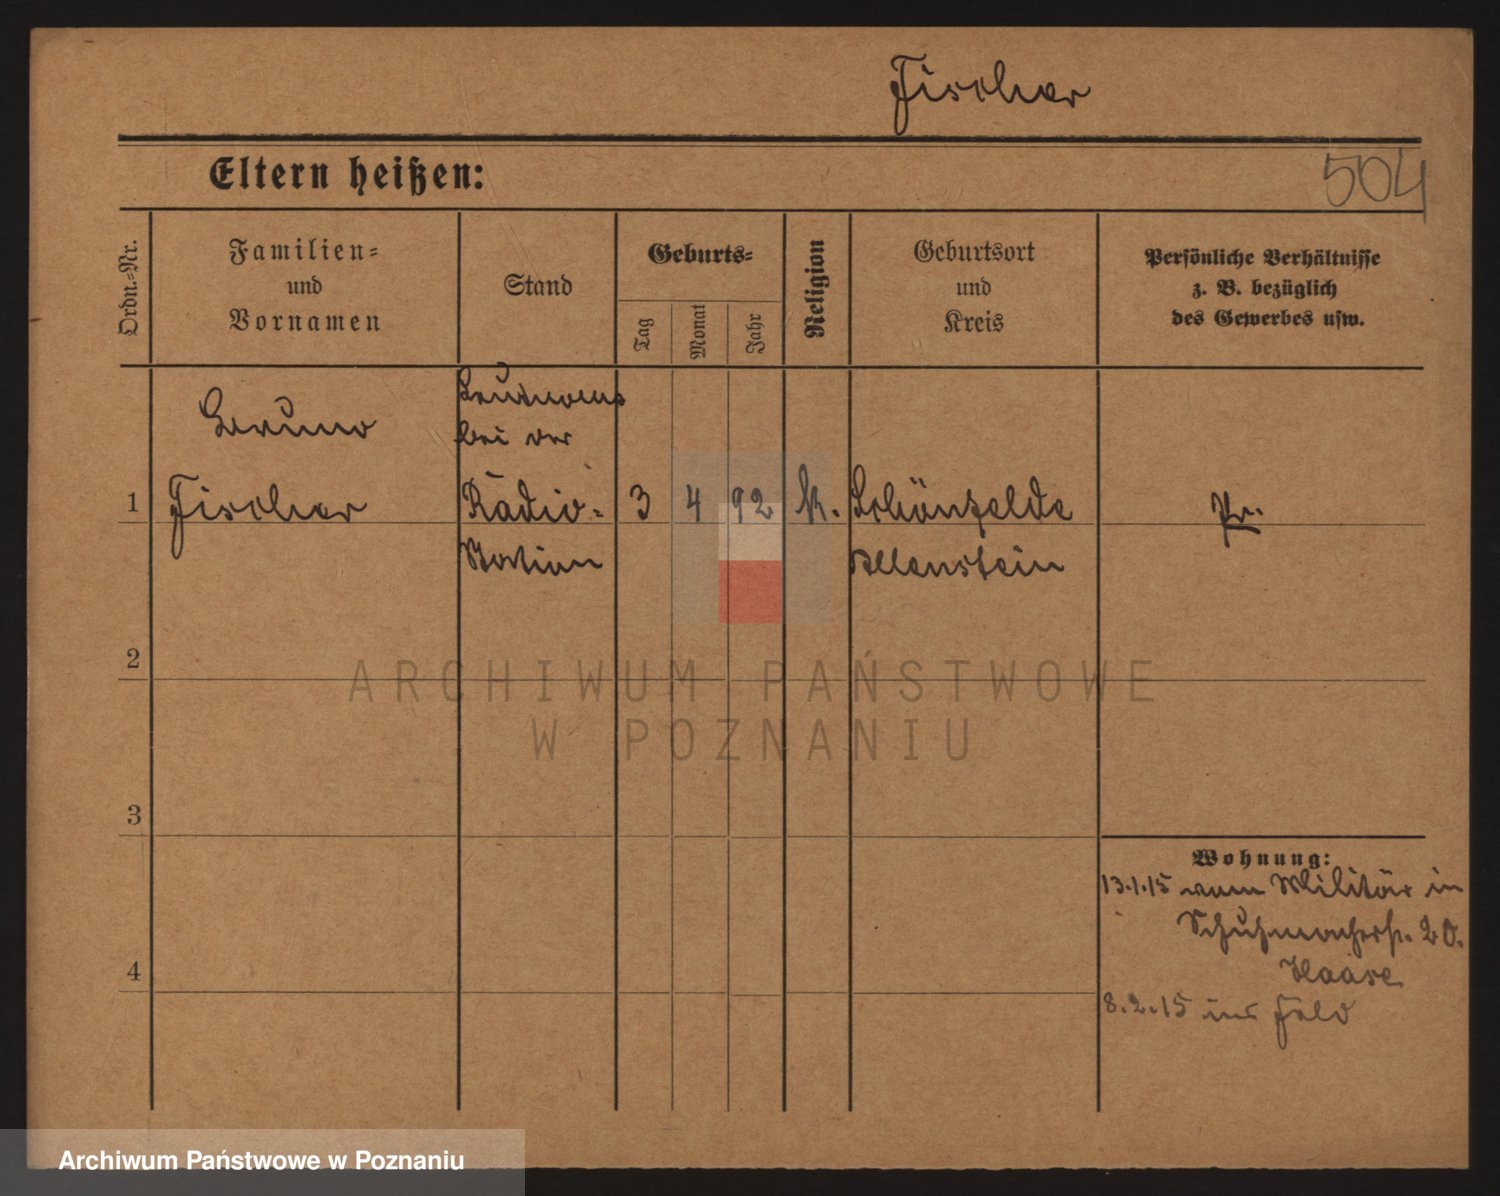 Fischer
Eltern heißen:
504
Ordn.-Nr.
Familien-
und
Vornamen
Stand
Geburts-
Tag
Monat
Jahr
Religion
Geburtsort
und
Kreis
Persönliche Verhältnisse
z. B. bezüglich
des Gewerbes usw.
Bruno
Fischer
bei der
Radio-
Station
1
3
4
92
K.
Schönfelde
Allenstein
Pr.
2
3
4
Wohnung:
13.1.15 vom Militär in
Schuhmacherstr. 20.
Haase
8.2.15 ins Feld
ARCHIWUM PAŃSTWOWE
W POZNANIU
Archiwum Państwowe w Poznaniu